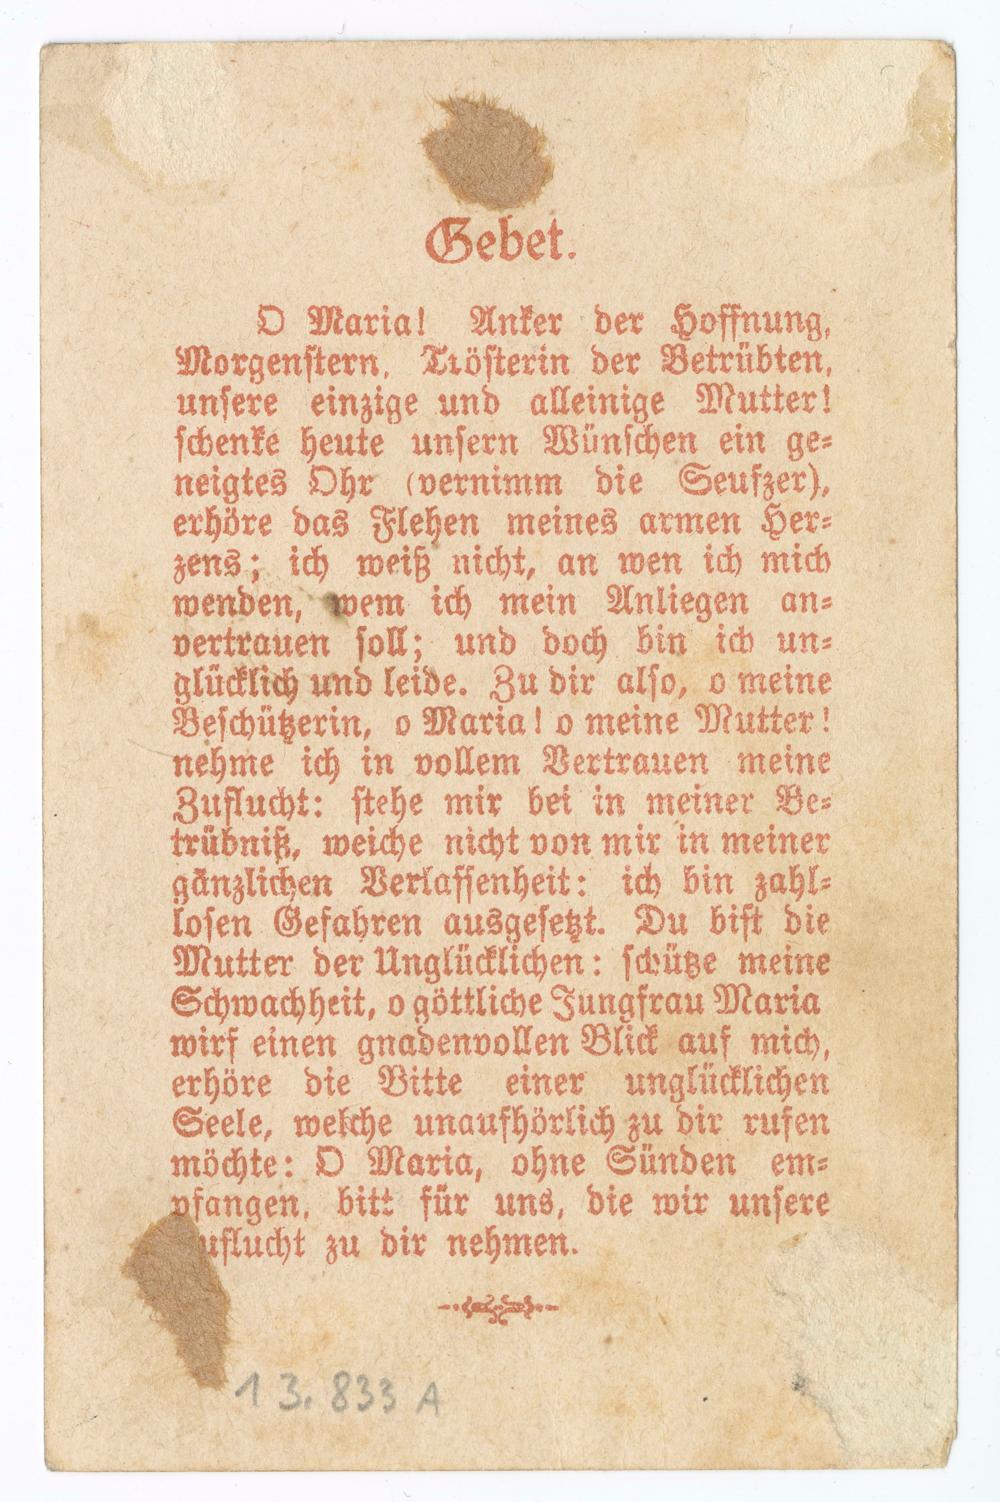 Gebet.
O Maria! Anker der Hoffnung,
Morgenstern, Trösterin der Betrübten,
unsere einzige und alleinige Mutter!
schenke heute unsern Wünschen ein ge=
neigtes Ohr (vernimm die Seufzer),
erhöre das Flehen meines armen Her=
zens; ich weiß nicht, an wen ich mich
wenden, wem ich mein Anliegen an=
vertrauen soll; und doch bin ich un=
glücklich und leide. Zu dir also, o meine
Beschützerin, o Maria! o meine Mutter!
nehme ich in vollem Vertrauen meine
Zuflucht: stehe mir bei in meiner Be=
trübniß, weiche nicht von mir in meiner
gänzlichen Verlassenheit: ich bin zahl=
losen Gefahren ausgesetzt. Du bist die
Mutter der Unglücklichen: schütze meine
Schwachheit, o göttliche Jungfrau Maria
wirf einen gnadenvollen Blick auf mich,
erhöre die Bitte einer unglücklichen
Seele, welche unaufhörlich zu dir rufen
möchte: O Maria, ohne Sünden em=
pfangen, bitt für uns, die wir unsere
uflucht zu dir nehmen.
13.833 A